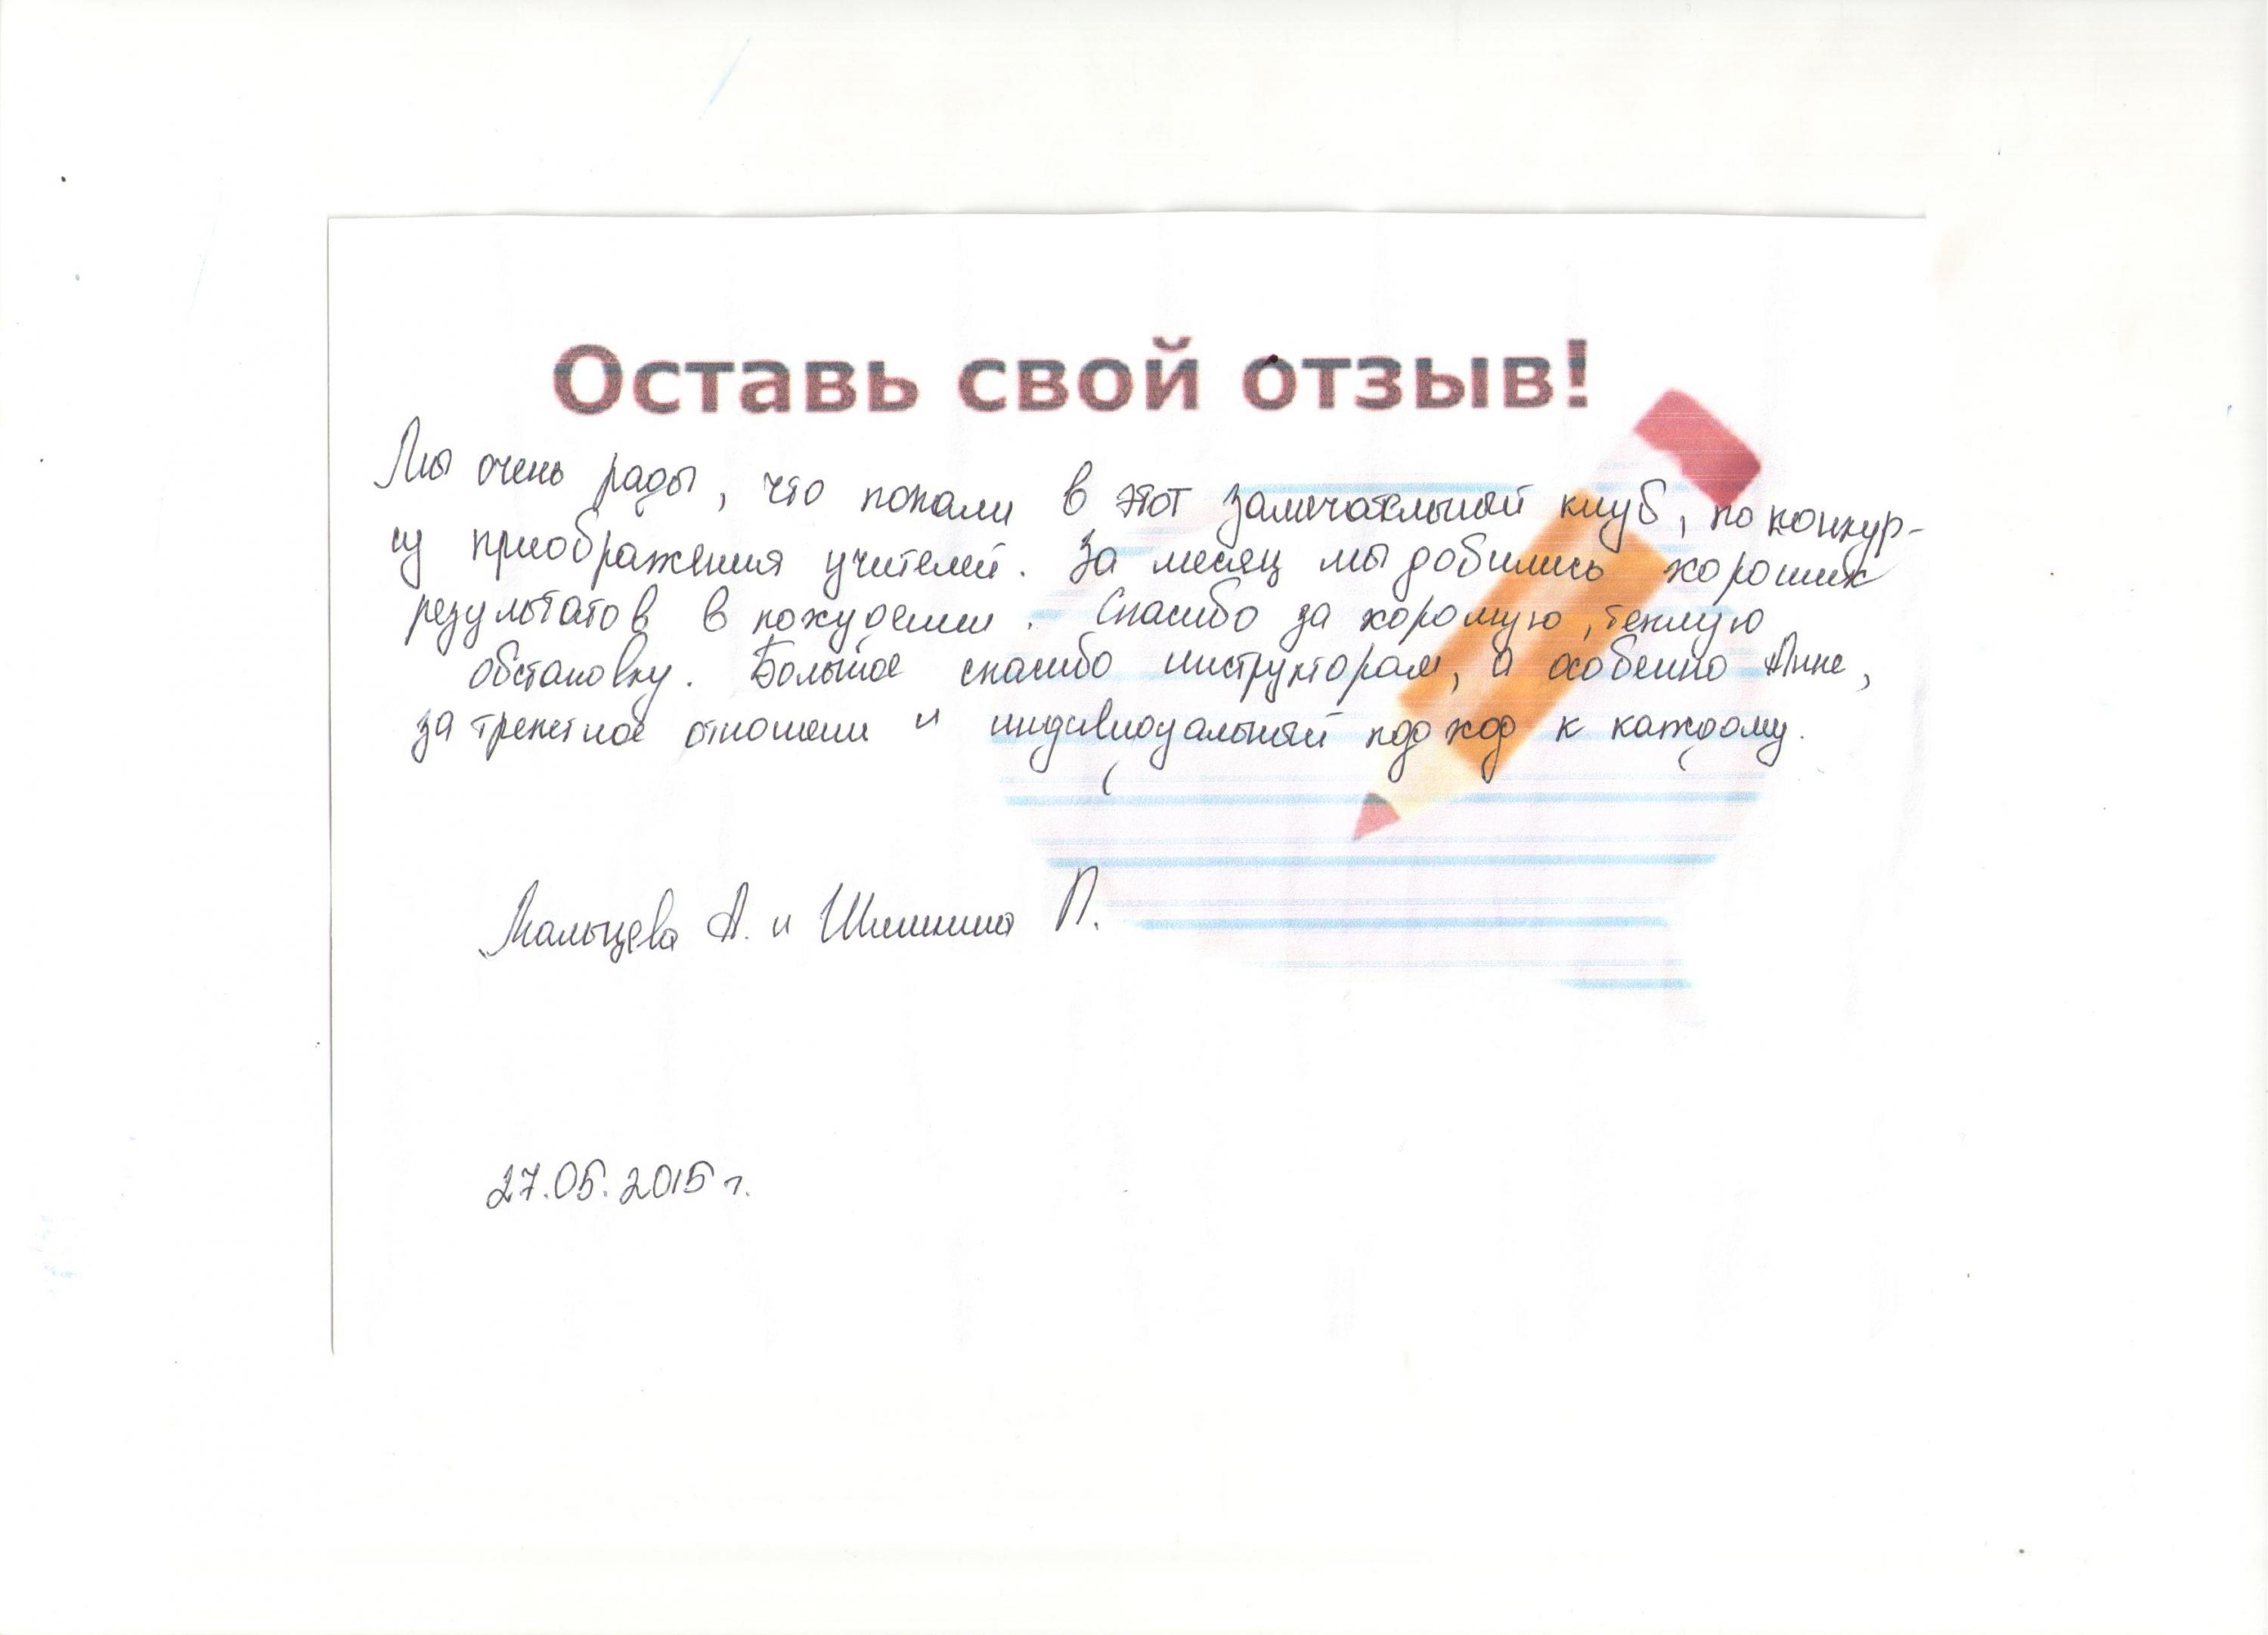 Оставь свой отзыв!
Мы очень рады, что попали в этот замечательный клуб, по конкур-
су приображения учителей. За месяц мы добились хороших
результатов в похудении. Спасибо за хорошую, теплую
обстановку. Большое спасибо инструкторам, а особенно Анне,
за трепетное отношени и индивидуальный подход к каждому.
Мальцева А. и П.
27.05.2015 г.